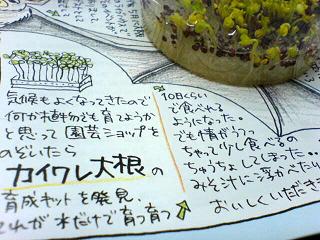 気候もよくなってきたので
何か植物でも育てようか
と思って園芸ショップを
のぞいたら
カイワレ大根の
育成キットを発見.
これが水だけで育つ育つ
10日くらい
で食べれる
ようになった。
でも情がうつっ
ちゃって少し食べるの
ちゅうちょしてしまった…
みそ汁に浮かべたり
おいしくいただき